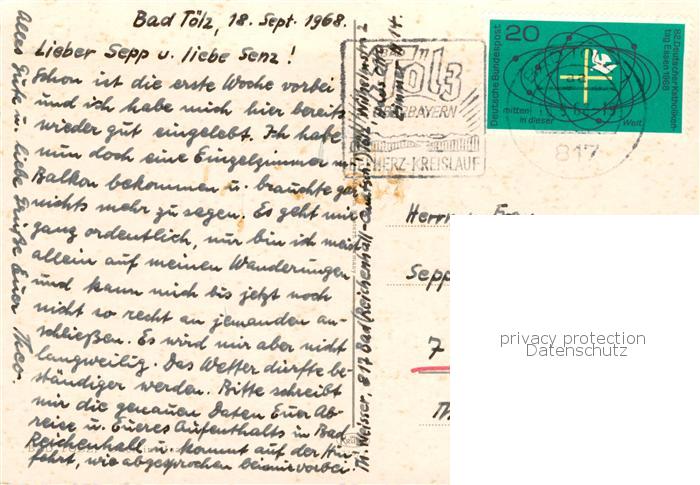 Bad Tölz, 18. Sept. 1968.
Lieber Sepp u. liebe Senz!
Schon ist die erste Woche vorbei
und ich habe mich hier bereits
wieder gut eingelebt. Ich habe
nun doch eine Einzelzimmer m.
Balkon bekommen u. brauchte gar
nichts mehr zu sagen. Es geht mir
ganz ordentlich, nur bin ich meist
allein auf meinen Wanderungen
und kann mich bis jetzt noch
nicht so recht an jemanden an-
schließen. Es wird mir aber nicht
langweilig. Das Wetter dürfte be-
ständiger werden. Bitte schreibt
mir die genauen Daten Euer Ab-
reise u. Eueres Aufenthalts in Bad
Reichenhall u. kommt auf der Hin-
fahrt, wie abgesprochen bei mir vorbei.
Alles Gute u. liebe Grüße Euer Theo.
Th. Weisser, 817 Bad Tölz Wilhelmstr. 2
(Reichenhall-
Zimmer # 14
Tölz
OBERBAYERN
HERZ-KREISLAUF
817
20
Deutsche Bundespost
82. Deutscher Katholikentag Essen 1968
mitten in dieser Welt
Herrn u. Frau
Sepp
7
Th
privacy protection
Datenschutz